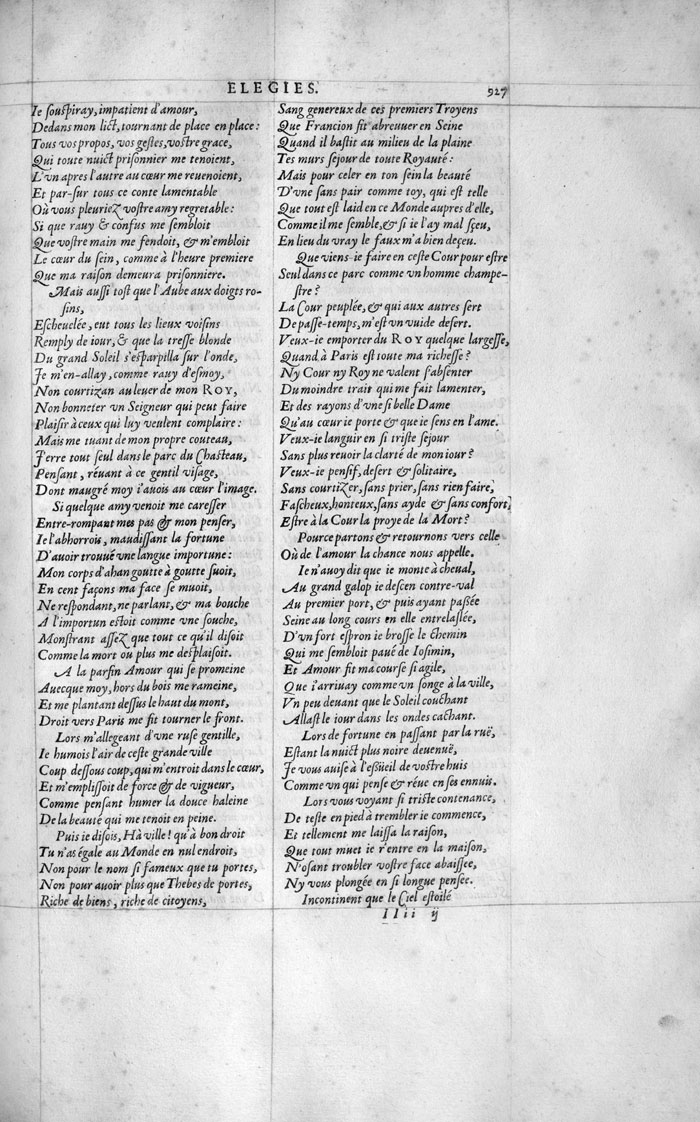 ELEGIES. 927
Ie souspiray, impatient d'amour,
Dedans mon lict, tournant de place en place:
Tous vos propos, vos gestes, vostre grace,
Qui toute nuict prisonnier me tenoient,
L'vn apres l'autre au cœur me reuenoient,
Et par-sur tous ce conte lamentable
Où vous pleuriez vostre amy regretable:
Si que rauy & confus me sembloit
Que vostre main me fendoit, & m'embloit
Le cœur du sein, comme à l'heure premiere
Que ma raison demeura prisonniere.
Mais aussi tost que l'Aube aux doigts ro-
sins,
Escheuelée, eut tous les lieux voisins
Remply de iour, & que la tresse blonde
Du grand Soleil s'esparpilla sur l'onde,
Je m'en-allay, comme rauy d'esmoy,
Non courtizan au leuer de mon ROY,
Non bonneter vn Seigneur qui peut faire
Plaisir à ceux qui luy veulent complaire:
Mais me tuant de mon propre couteau,
J'erre tout seul dans le parc du Chasteau,
Pensant, réuant à ce gentil visage,
Dont maugré moy i'auois au cœur l'image.
Si quelque amy venoit me caresser
Entre-rompant mes pas & mon penser,
Ie l'abhorrois, maudissant la fortune
D'auoir trouué vne langue importune:
Mon corps d'ahan goutte à goutte suoit,
En cent façons ma face se muoit,
Ne respondant, ne parlant, & ma bouche
A l'importun estoit comme vne souche,
Monstrant assez que tout ce qu'il disoit
Comme la mort ou plus me desplaisoit.
A la parfin Amour qui se promeine
Auecque moy, hors du bois me rameine,
Et me plantant dessus le haut du mont,
Droit vers Paris me fit tourner le front.
Lors m'allegeant d'vne ruse gentille,
Ie humois l'air de ceste grande ville
Coup dessous coup, qui m'entroit dans le cœur,
Et m'emplissoit de force & de vigueur,
Comme pensant humer la douce haleine
De la beauté qui me tenoit en peine.
Puis ie disois, Hà ville! qu'à bon droit
Tu n'as égale au Monde en nul endroit,
Non pour le nom si fameux que tu portes,
Non pour auoir plus que Thebes de portes,
Riche de biens, riche de citoyens,
Sang genereux de ces premiers Troyens
Que Francion fit abreuuer en Seine
Quand il bastit au milieu de la plaine
Tes murs sejour de toute Royauté:
Mais pour celer en ton sein la beauté
D'vne sans pair comme toy, qui est telle
Que tout est laid en ce Monde aupres d'elle,
Comme il me semble, & si ie l'ay mal sçeu,
En lieu du vray le faux m'a bien deçeu.
Que viens-ie faire en ceste Cour pour estre
Seul dans ce parc comme vn homme champe-
stre?
La Cour peuplée, & qui aux autres sert
De passe-temps, m'est vn vuide desert.
Veux-ie emporter du ROY quelque largesse,
Quand à Paris est toute ma richesse?
Ny Cour ny Roy ne valent s'absenter
Du moindre trait qui me fait lamenter,
Et des rayons d'vne si belle Dame
Qu'au cœur ie porte & que ie sens en l'ame.
Veux-ie languir en si triste sejour
Sans plus reuoir la clarté de mon iour?
Veux-ie pensif, desert & solitaire,
Sans courtizer, sans prier, sans rien faire,
Fascheux, honteux, sans ayde & sans confort,
Estre à la Cour la proye de la Mort?
Pource partons & retournons vers celle
Où de l'amour la chance nous appelle.
Ie n'auoy dit que ie monte à cheual,
Au grand galop ie descen contre-val
Au premier port, & puis ayant passée
Seine au long cours en elle entrelassée,
D'vn fort espron ie brosse le chemin
Qui me sembloit paué de Iosimin,
Et Amour fit ma course si agile,
Que i'arriuay comme vn songe à la ville,
Vn peu deuant que le Soleil couchant
Allast le iour dans les ondes cachant.
Lors de fortune en passant par la ruë,
Estant la nuict plus noire deuenuë,
Je vous auise à l'essüeil de vostre huis
Comme vn qui pense & réue en ses ennuis.
Lors vous voyant si triste contenance,
De teste en pied à trembler ie commence,
Et tellement me laissa la raison,
Que tout muet ie r'entre en la maison,
N'osant troubler vostre face abaissee,
Ny vous plongée en si longue pensee.
Incontinent que le Ciel estoilé
IIii ij